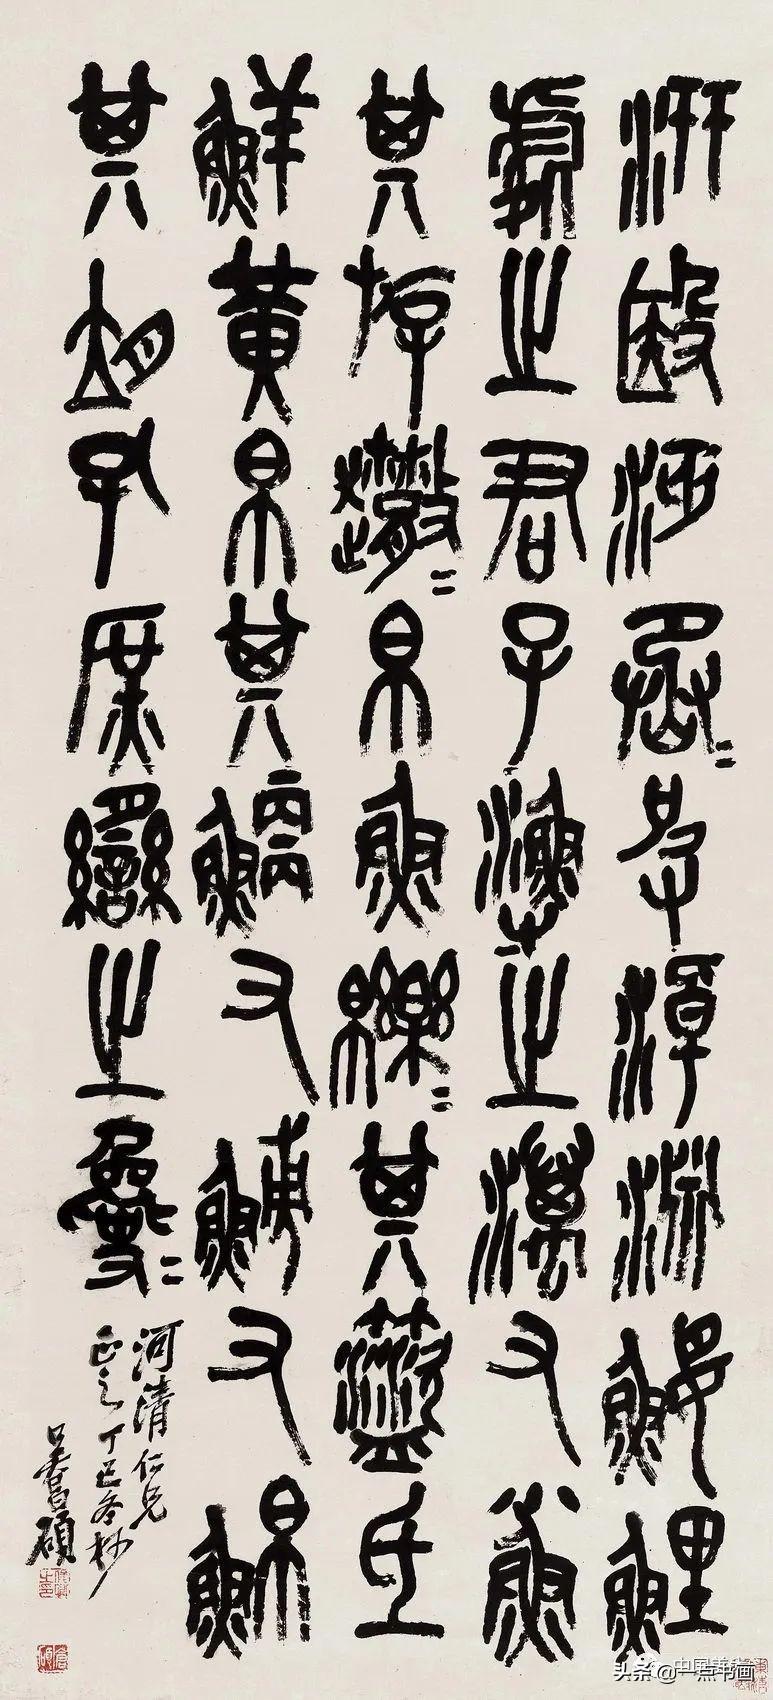 汧殹沔丞=皮淖淵鰋鯉
處之君子漁之澫又小魚
其斿=帛魚皪=其盜氐
鮮黃帛其鯾又鯆又鮊
其朔孔庶臠之=
河清仁兄
正之丁巳冬杪
吳昌碩
俊卿之印
倉碩
头条@一点书画